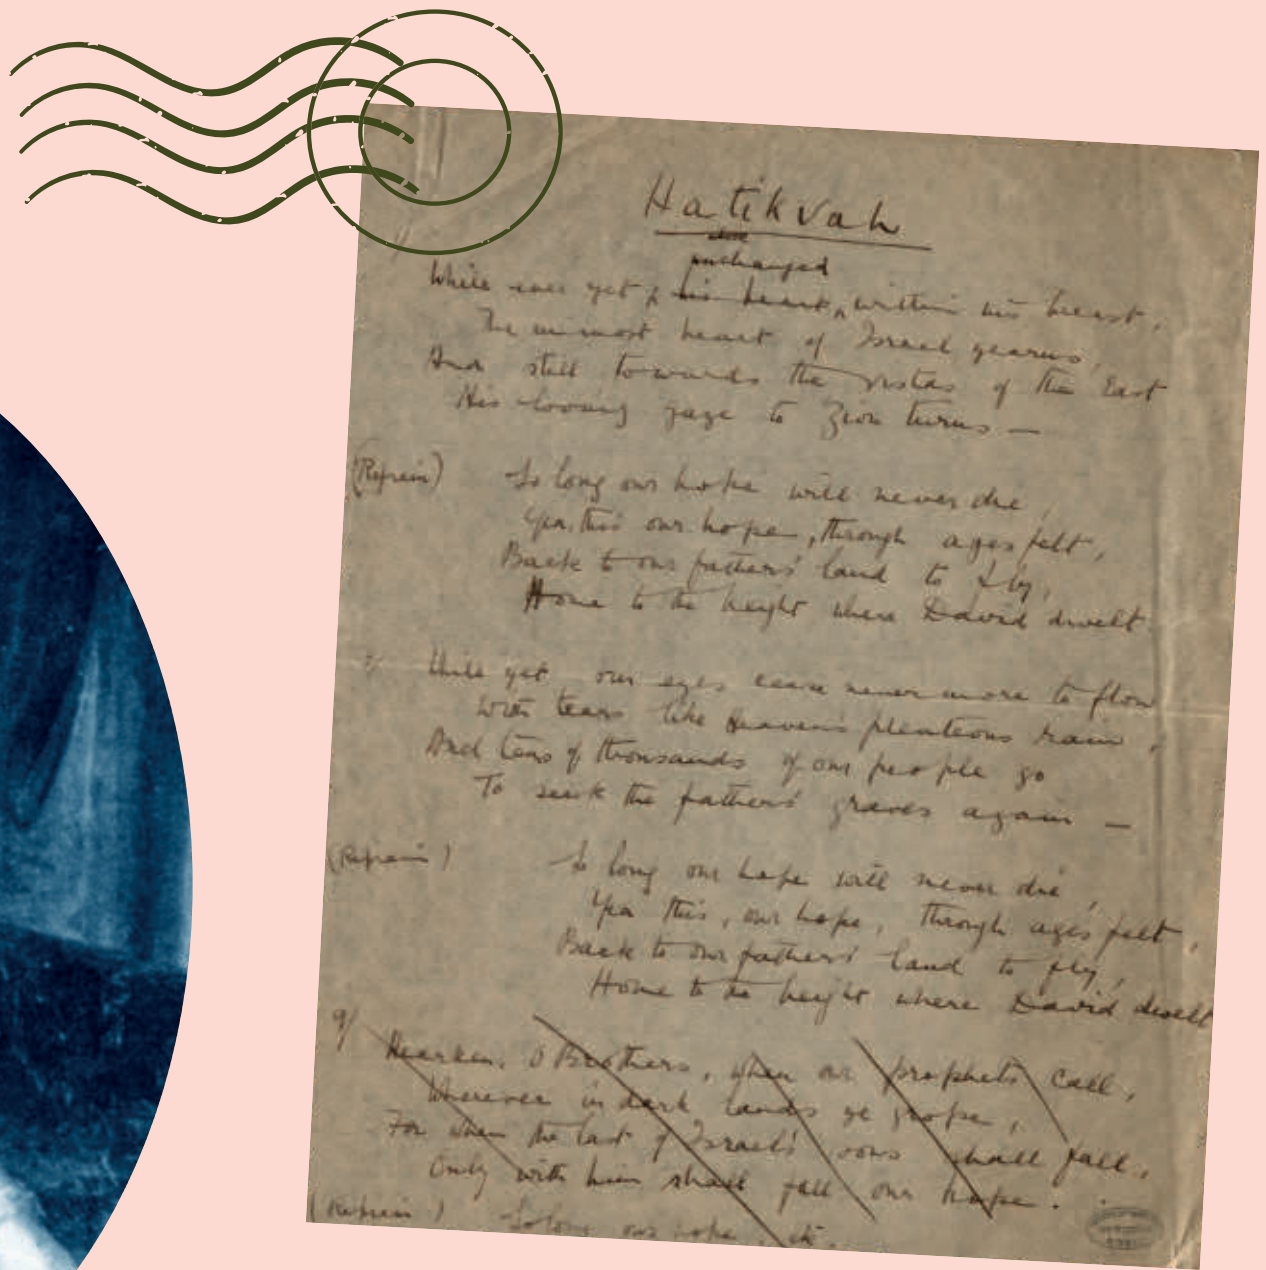 Hatikvah
1/
unchanged
While ever yet his heart, within his breast,
The inmost heart of Israel yearns,
And still towards the vistas of the East
His loving gaze to Zion turns —
(Refrain) So long our hope will never die,
Yea, this our hope, through ages felt,
Back to our fathers' land to fly,
Home to the height where David dwelt
2/ While yet our eyes cease never more to flow
With tears like Heaven's plenteous rain,
And tens of thousands of our people go
To seek the fathers' graves again —
(Refrain) So long our hope will never die,
Yea this, our hope, through ages felt,
Back to our fathers' land to fly,
Home to the height where David dwelt
9/ Hearken, O Brothers, when our prophets call,
Wherever in dark lands ye grope,
For when the last of Israel's sons shall fall,
Only with him shall fall our hope.
(Refrain) So long our hope, etc.